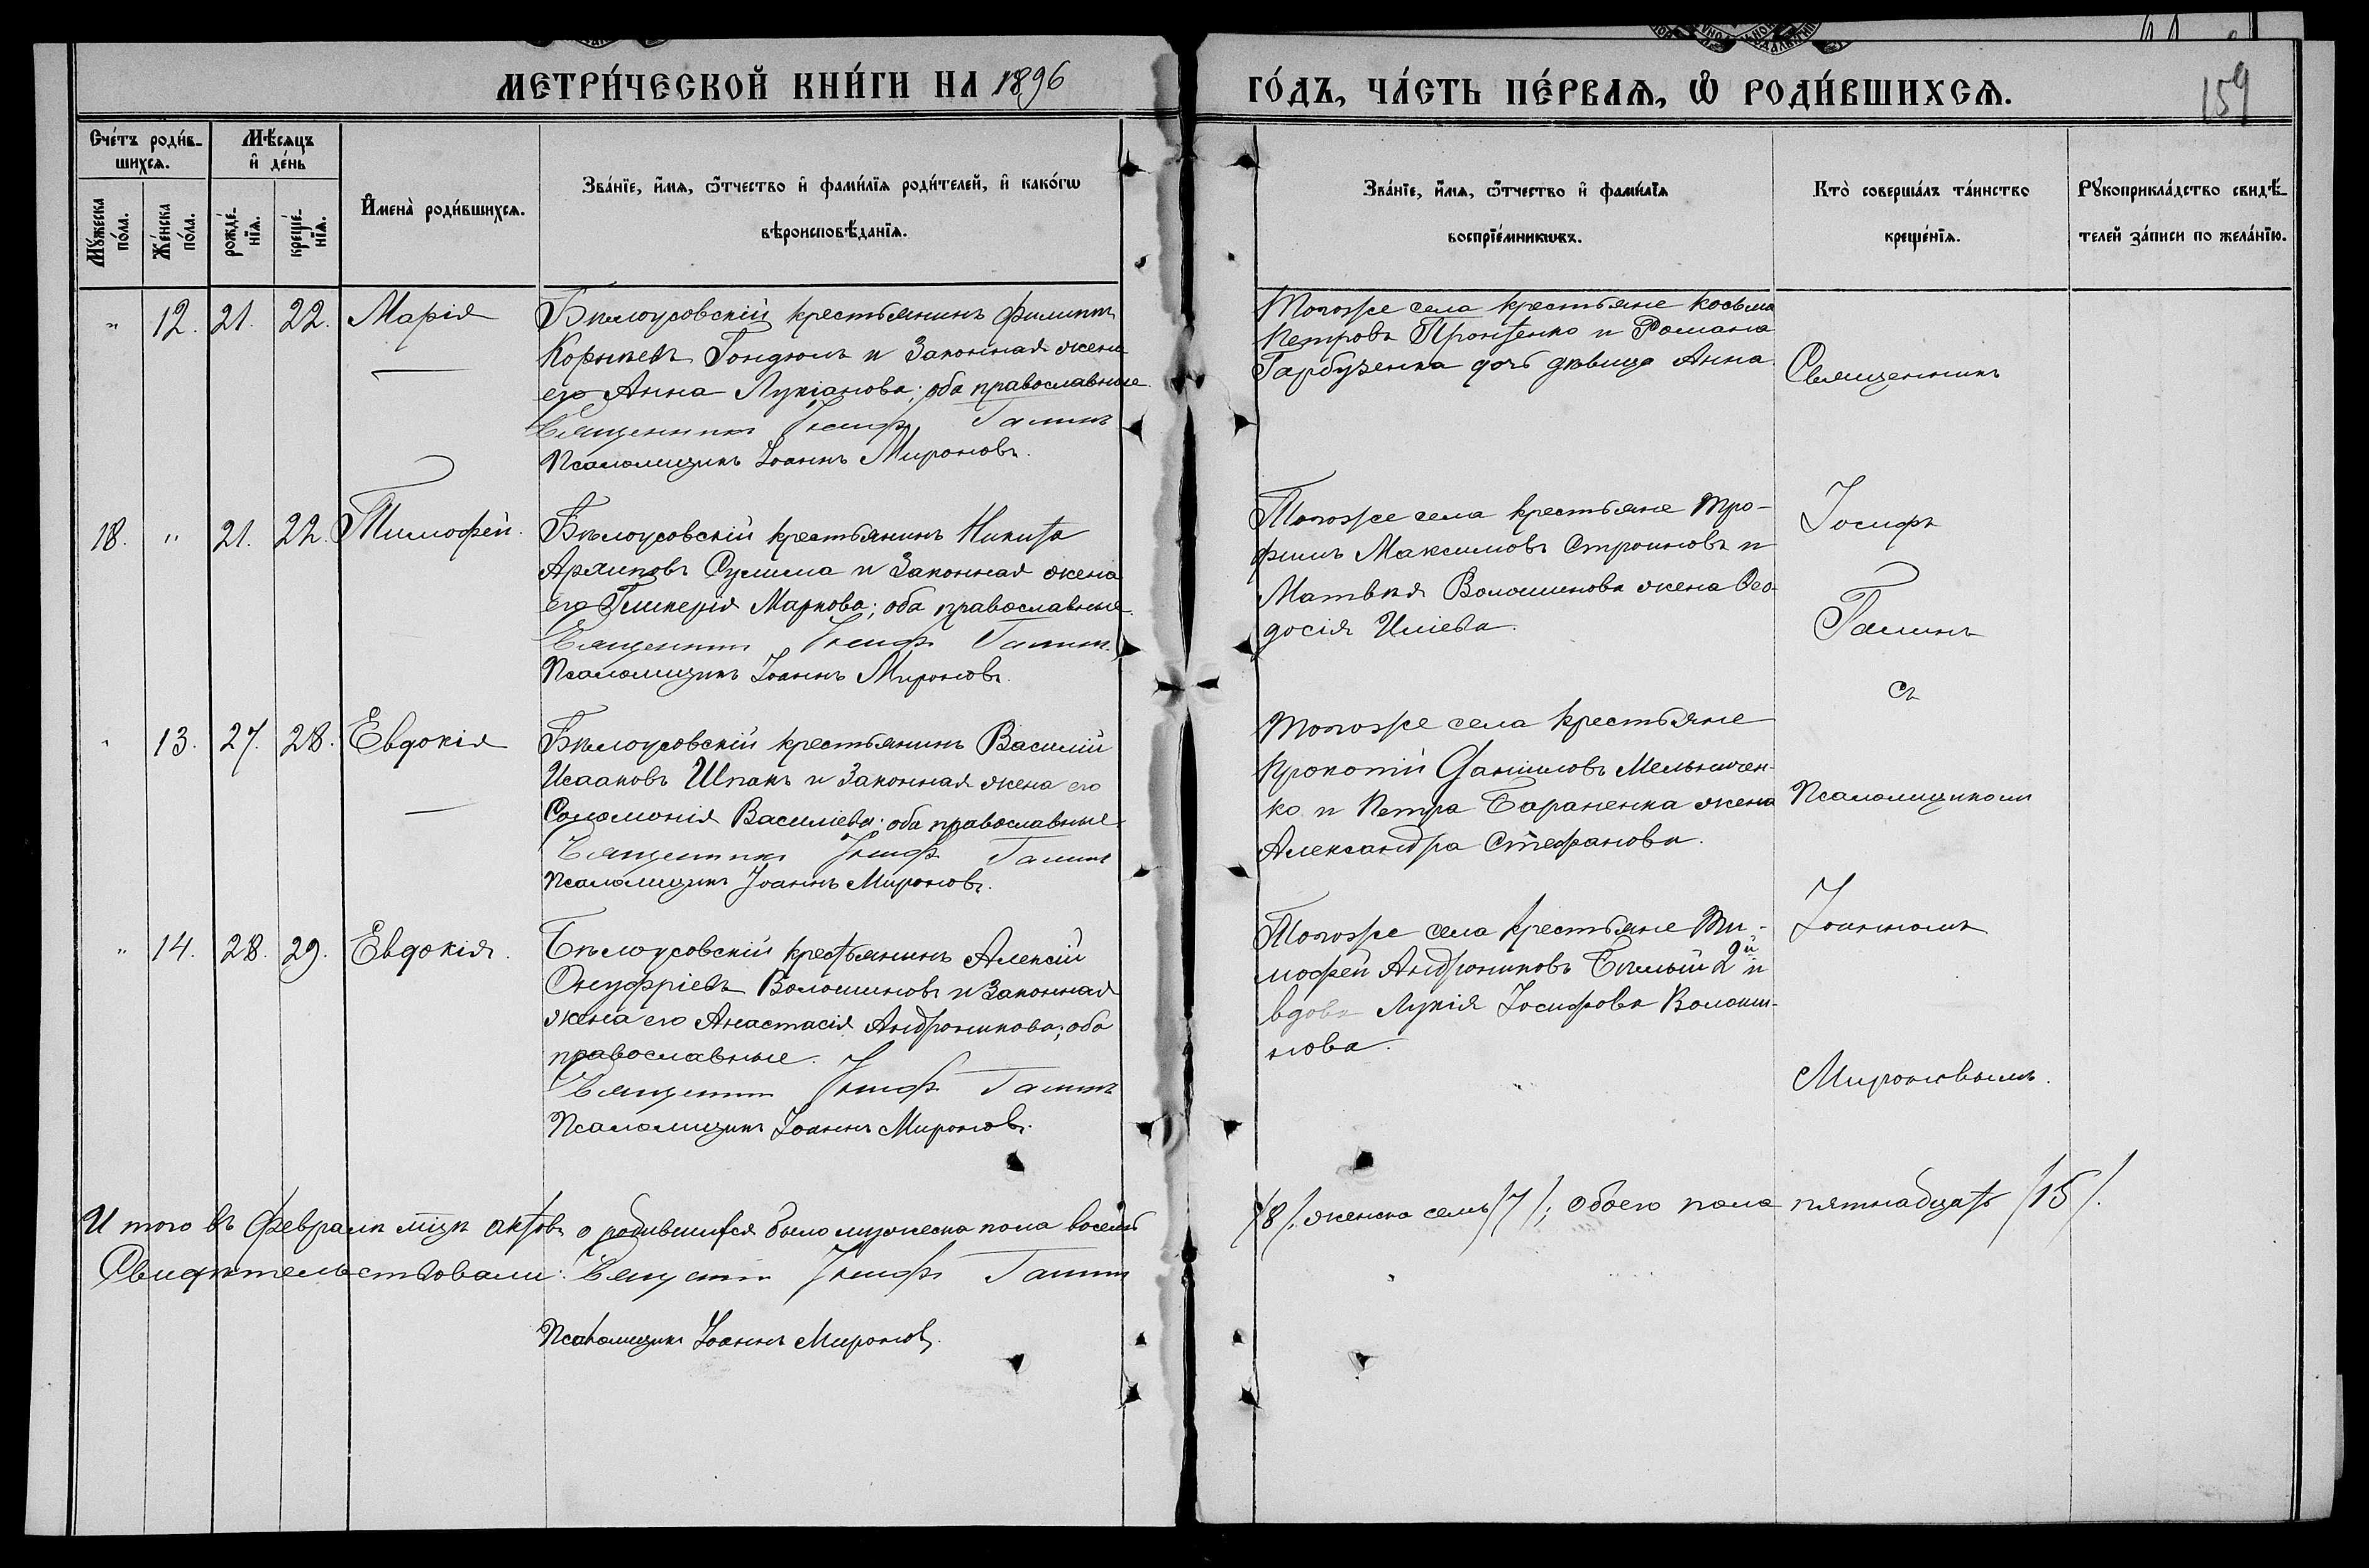 МЕТРИ́ЧЕСКОЙ КНИ́ГИ НА 1896
ГО́ДЪ, ЧА́СТЬ ПЕ́РВАѦ, Ѽ РОДИ́ВШИХСѦ.
159
Сче́тъ роди́в-
шихсѧ.
Мѣ́сѧцъ
и҆ де́нь
Мꙋ́жеска
по́ла.
Же́нска
по́ла.
рожде́-
нїѧ.
креще́-
нїѧ.
И҆мена̀ роди́вшихсѧ.
Зва́нїе, и҆́мѧ, ѻ҆́тчество и҆ фами́лїѧ роди́телей, и҆ како́гѡ
вѣроисповѣ́данїѧ.
Зва́нїе, и҆́мѧ, ѻ҆́тчество и҆ фами́лїѧ
воспрїе́мникѡвъ.
Кто̀ соверша́лъ та́инство
креще́нїѧ.
Рꙋкоприкла́дство свидѣ́-
телей за́писи по жела́нїю.
" 12. 21. 22. Марія
Бѣлоусовскій крестьянинъ Филиппъ
Корнѣевъ Гондюлъ и законная жена
его Анна Лукіанова; оба православные.
Священникъ Іосифъ Галинъ
Псаломщикъ Іоаннъ Мироновъ.
Тогоже села крестьяне Косьма
Петровъ Проценко и Романа
Гарбузенка дочь дѣвица Анна.
Священникъ
18. " 21. 22. Тимофей.
Бѣлоусовскій крестьянинъ Никита
Архиповъ Сулима и законная жена
его Гликерія Маркова; оба православные.
Священникъ Іосифъ Галинъ.
Псаломщикъ Іоаннъ Мироновъ.
Тогоже села крестьяне Тро-
фимъ Максимовъ Строиновъ и
Матвѣя Волошинова жена Ѳео-
досія Иліева.
Іосифъ
Галинъ
съ
" 13. 27. 28. Евдокія
Бѣлоусовскій крестьянинъ Василій
Исааковъ Шпакъ и законная жена его
Соломонія Василіева; оба православные.
Священникъ Іосифъ Галинъ
Псаломщикъ Іоаннъ Мироновъ.
Тогоже села крестьяне
Прокопій Даниловъ Мельничен-
ко и Петра Бараненка жена
Александра Стефанова.
Псаломщикомъ
" 14. 28. 29. Евдокія.
Бѣлоусовскій крестьянинъ Алексій
Онуфріевъ Волошиновъ и законная
жена его Анастасія Андроникова; оба
православные.
Священникъ Іосифъ Галинъ
Псаломщикъ Іоаннъ Мироновъ.
Тогоже села крестьяне Ти-
мофей Андрониковъ Бѣлый 2й и
вдова Лукія Іосифова Волоши-
нова.
Іоанномъ
Мироновымъ.
И того въ Февралѣ мцѣ актовъ о родившихся было мужеска пола восемь
/8/, женска семь /7/; обоего пола пятнадцать /15/.
Свидѣтельствовали: Священникъ Іосифъ Галинъ
Псаломщикъ Іоаннъ Мироновъ.